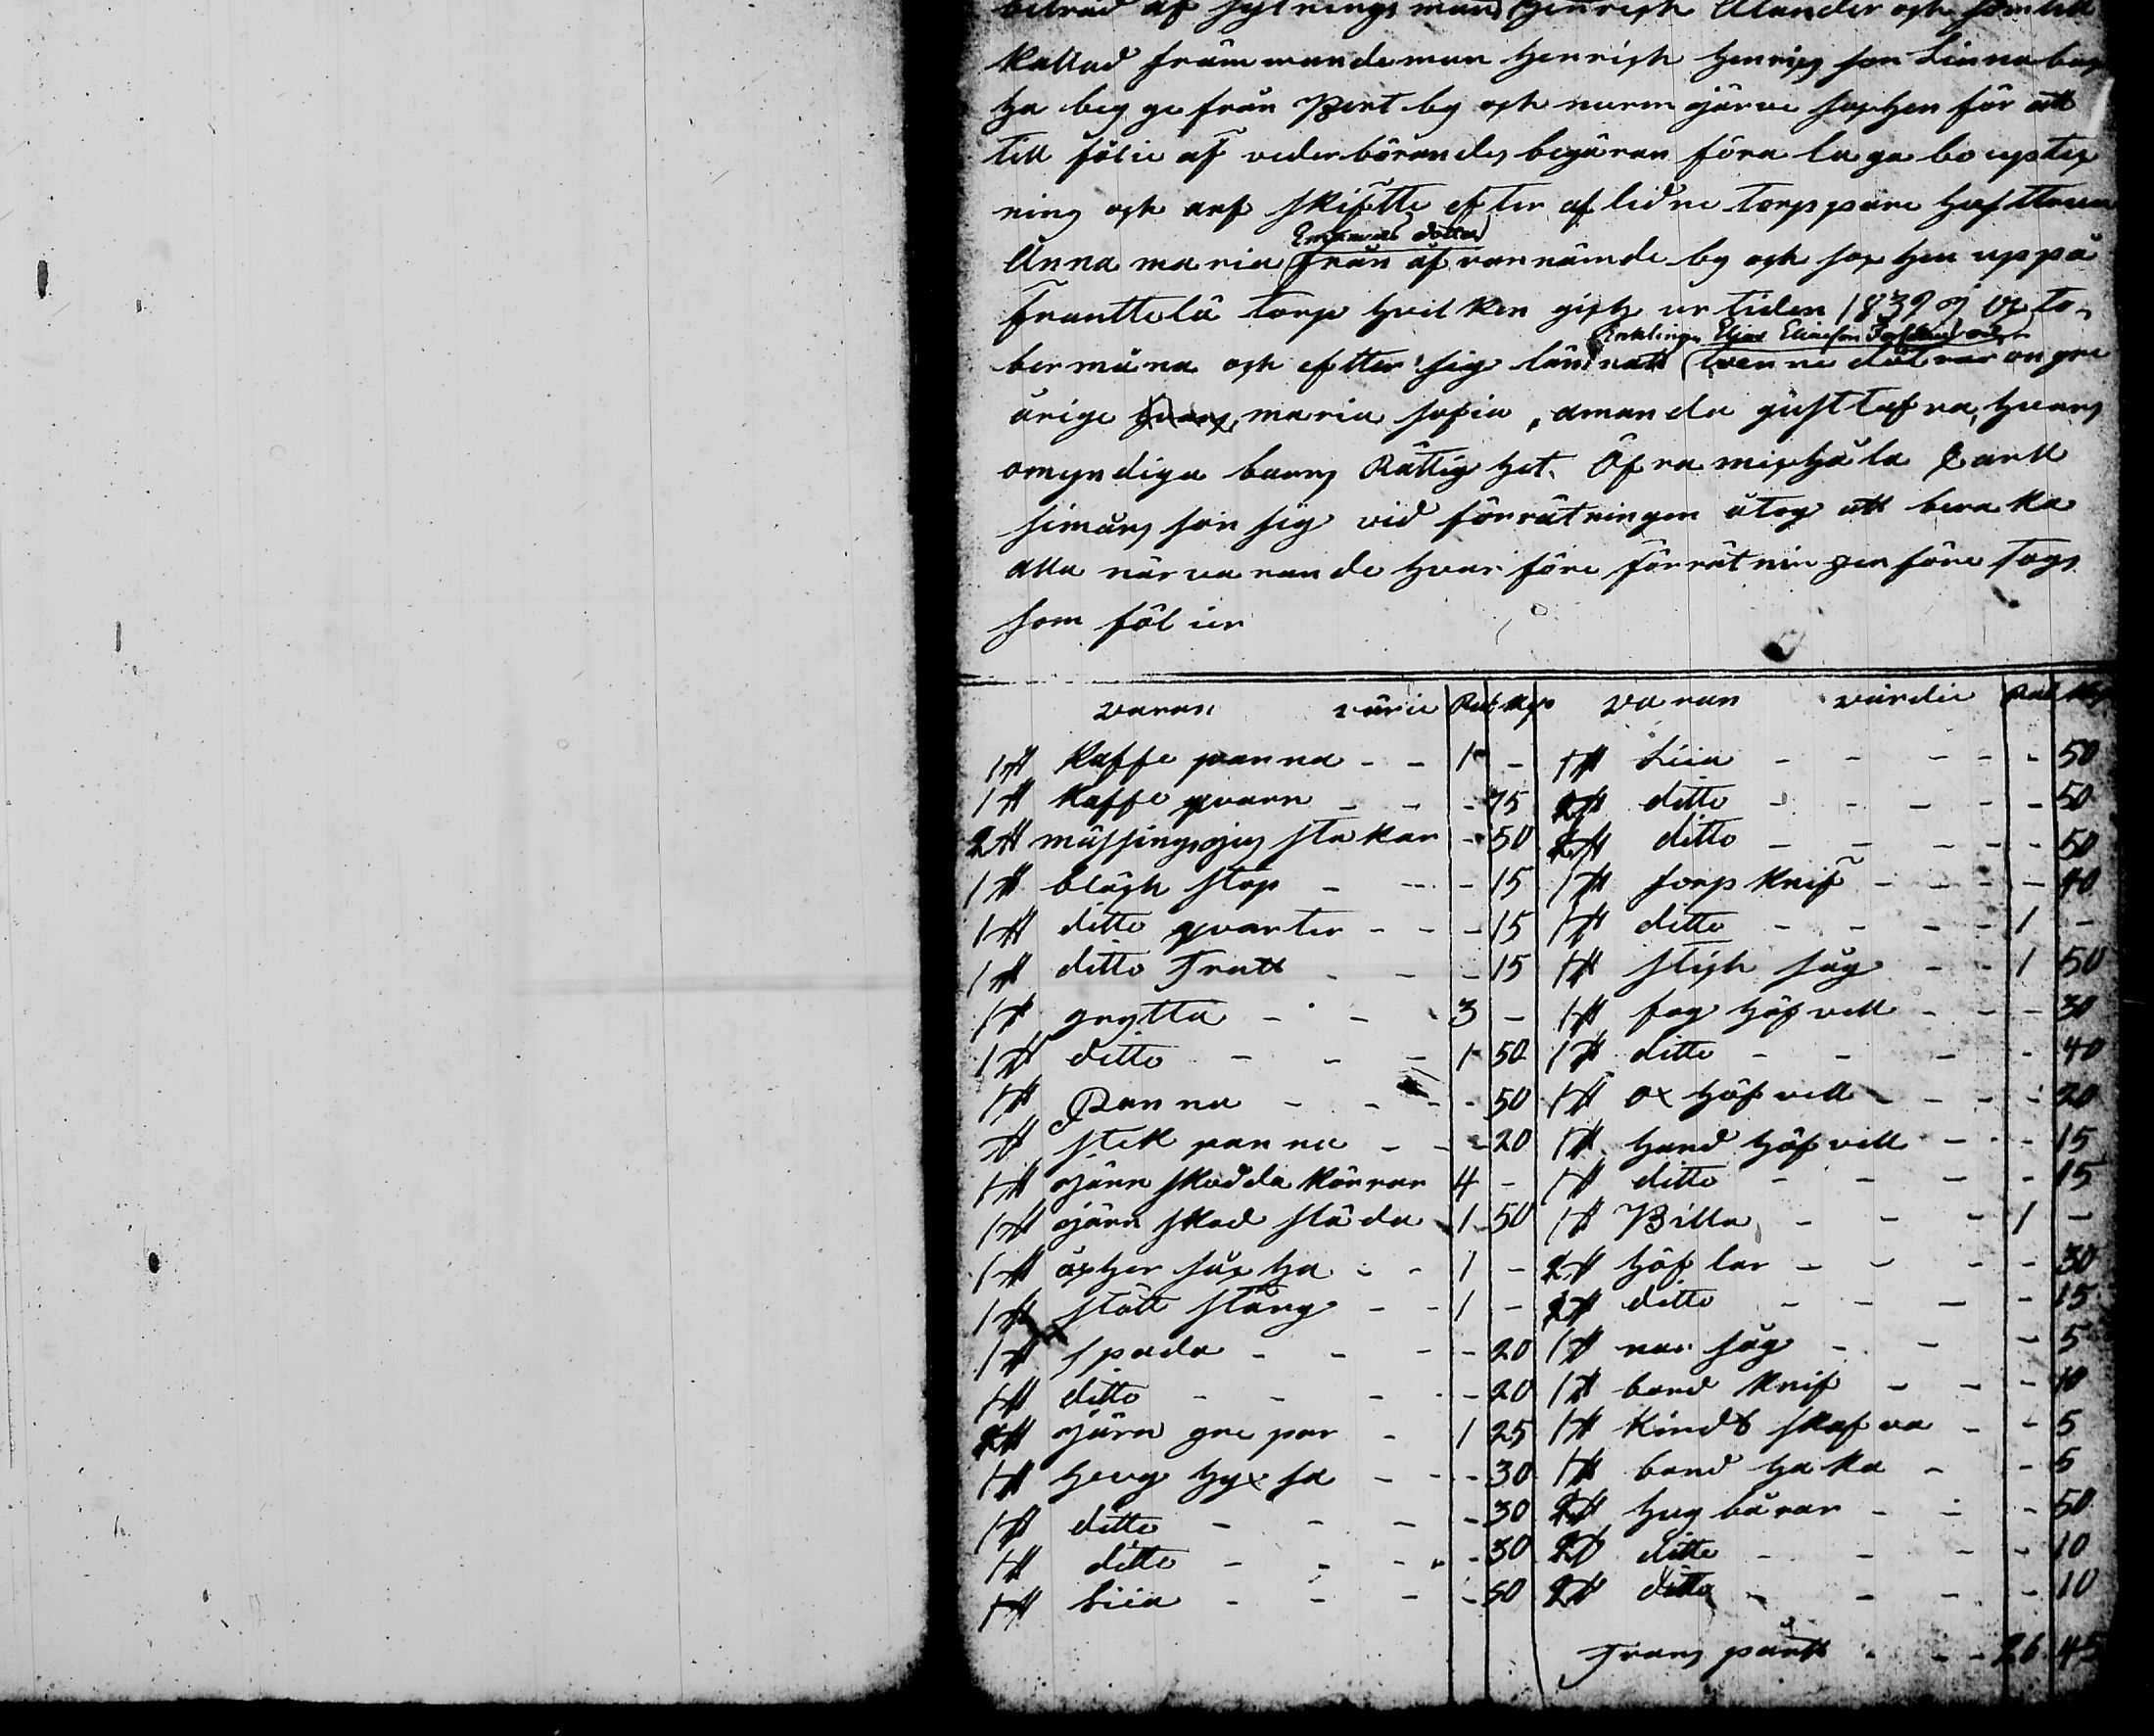 beträd af sytningsman Henrich Alander och som till
kallad främmande man Henrich Henrics son Linnabac
ka begge från Pert by och nurmijärvi sochen för att
till fölie af vederbörandes begäran föra laga bo uptec
ning och arf skiftte efter aflidne torppare hustrun
Emanuels dotter
Anna maria från ofvannämde by och sochen uppå
Franttelä torp hvilken gick ur tiden 1839 i Octo-
Enklingen Elias Eliasson Fastlund och
bermåna och eftter sig lämnatt tvenne döttrar ongre
årige maria sofia, amanda gusttafva, hvars
omyndiga barns Rättighet Öfra mickälä Carll
simons son sig vid förrätningen åtog att bevaka
alla närvarande hvarföre förrätningen före togs
som fölier
varan värie Rub Kop varan värdie Rub Kop
1 st Kaffe panna - - 1 - 1 st Liia - - - - 50
1 st Kaffe qvarn - - - 75 2 st ditto - - - - 50
2 st mässings jus stakar - 50 2 st ditto - - - - 50
1 st bläck stop - - - 15 1 st sorp knif - - - - 40
1 st ditto qvarter - - - 15 1 st ditto - - - - 1 -
1 st ditto Tratt - - - 15 1 st stick såg - - 1 50
1 st grytta - - 3 - 1 st fog höfvell - - - 30
1 st ditto - - - 1 50 1 st ditto - - - - 40
1 st Panna - - - 50 1 st ox höfvell - - - - 20
st stek panna - - - 20 1 st hand höfvell - - - 15
1 st järn skodda kärrar 4 - 1 st ditto - - - - 15
1 st järn skod släda 1 50 1 st Billa - - - 1 -
1 st åcker sacka - - 1 - 2 st höflar - - - - 30
1 st stött stång - - 1 - 2 st ditto - - - - 15
1 st spada - - - - 20 1 st nav såg - - - 5
1 st ditto - - - - 20 1 st band knif - - - 10
2 st järn grepar - 1 25 1 st skafva - - 5
1 st hugg yxa - - - 30 1 st band haka - - 5
1 st ditto - - - - 30 2 st - - - 50
1 st ditto - - - - 30 2 st ditto - - - - 10
1 st Liia - - - - 50 2 st ditto - - - - 10
Trans partt - - - 26 45